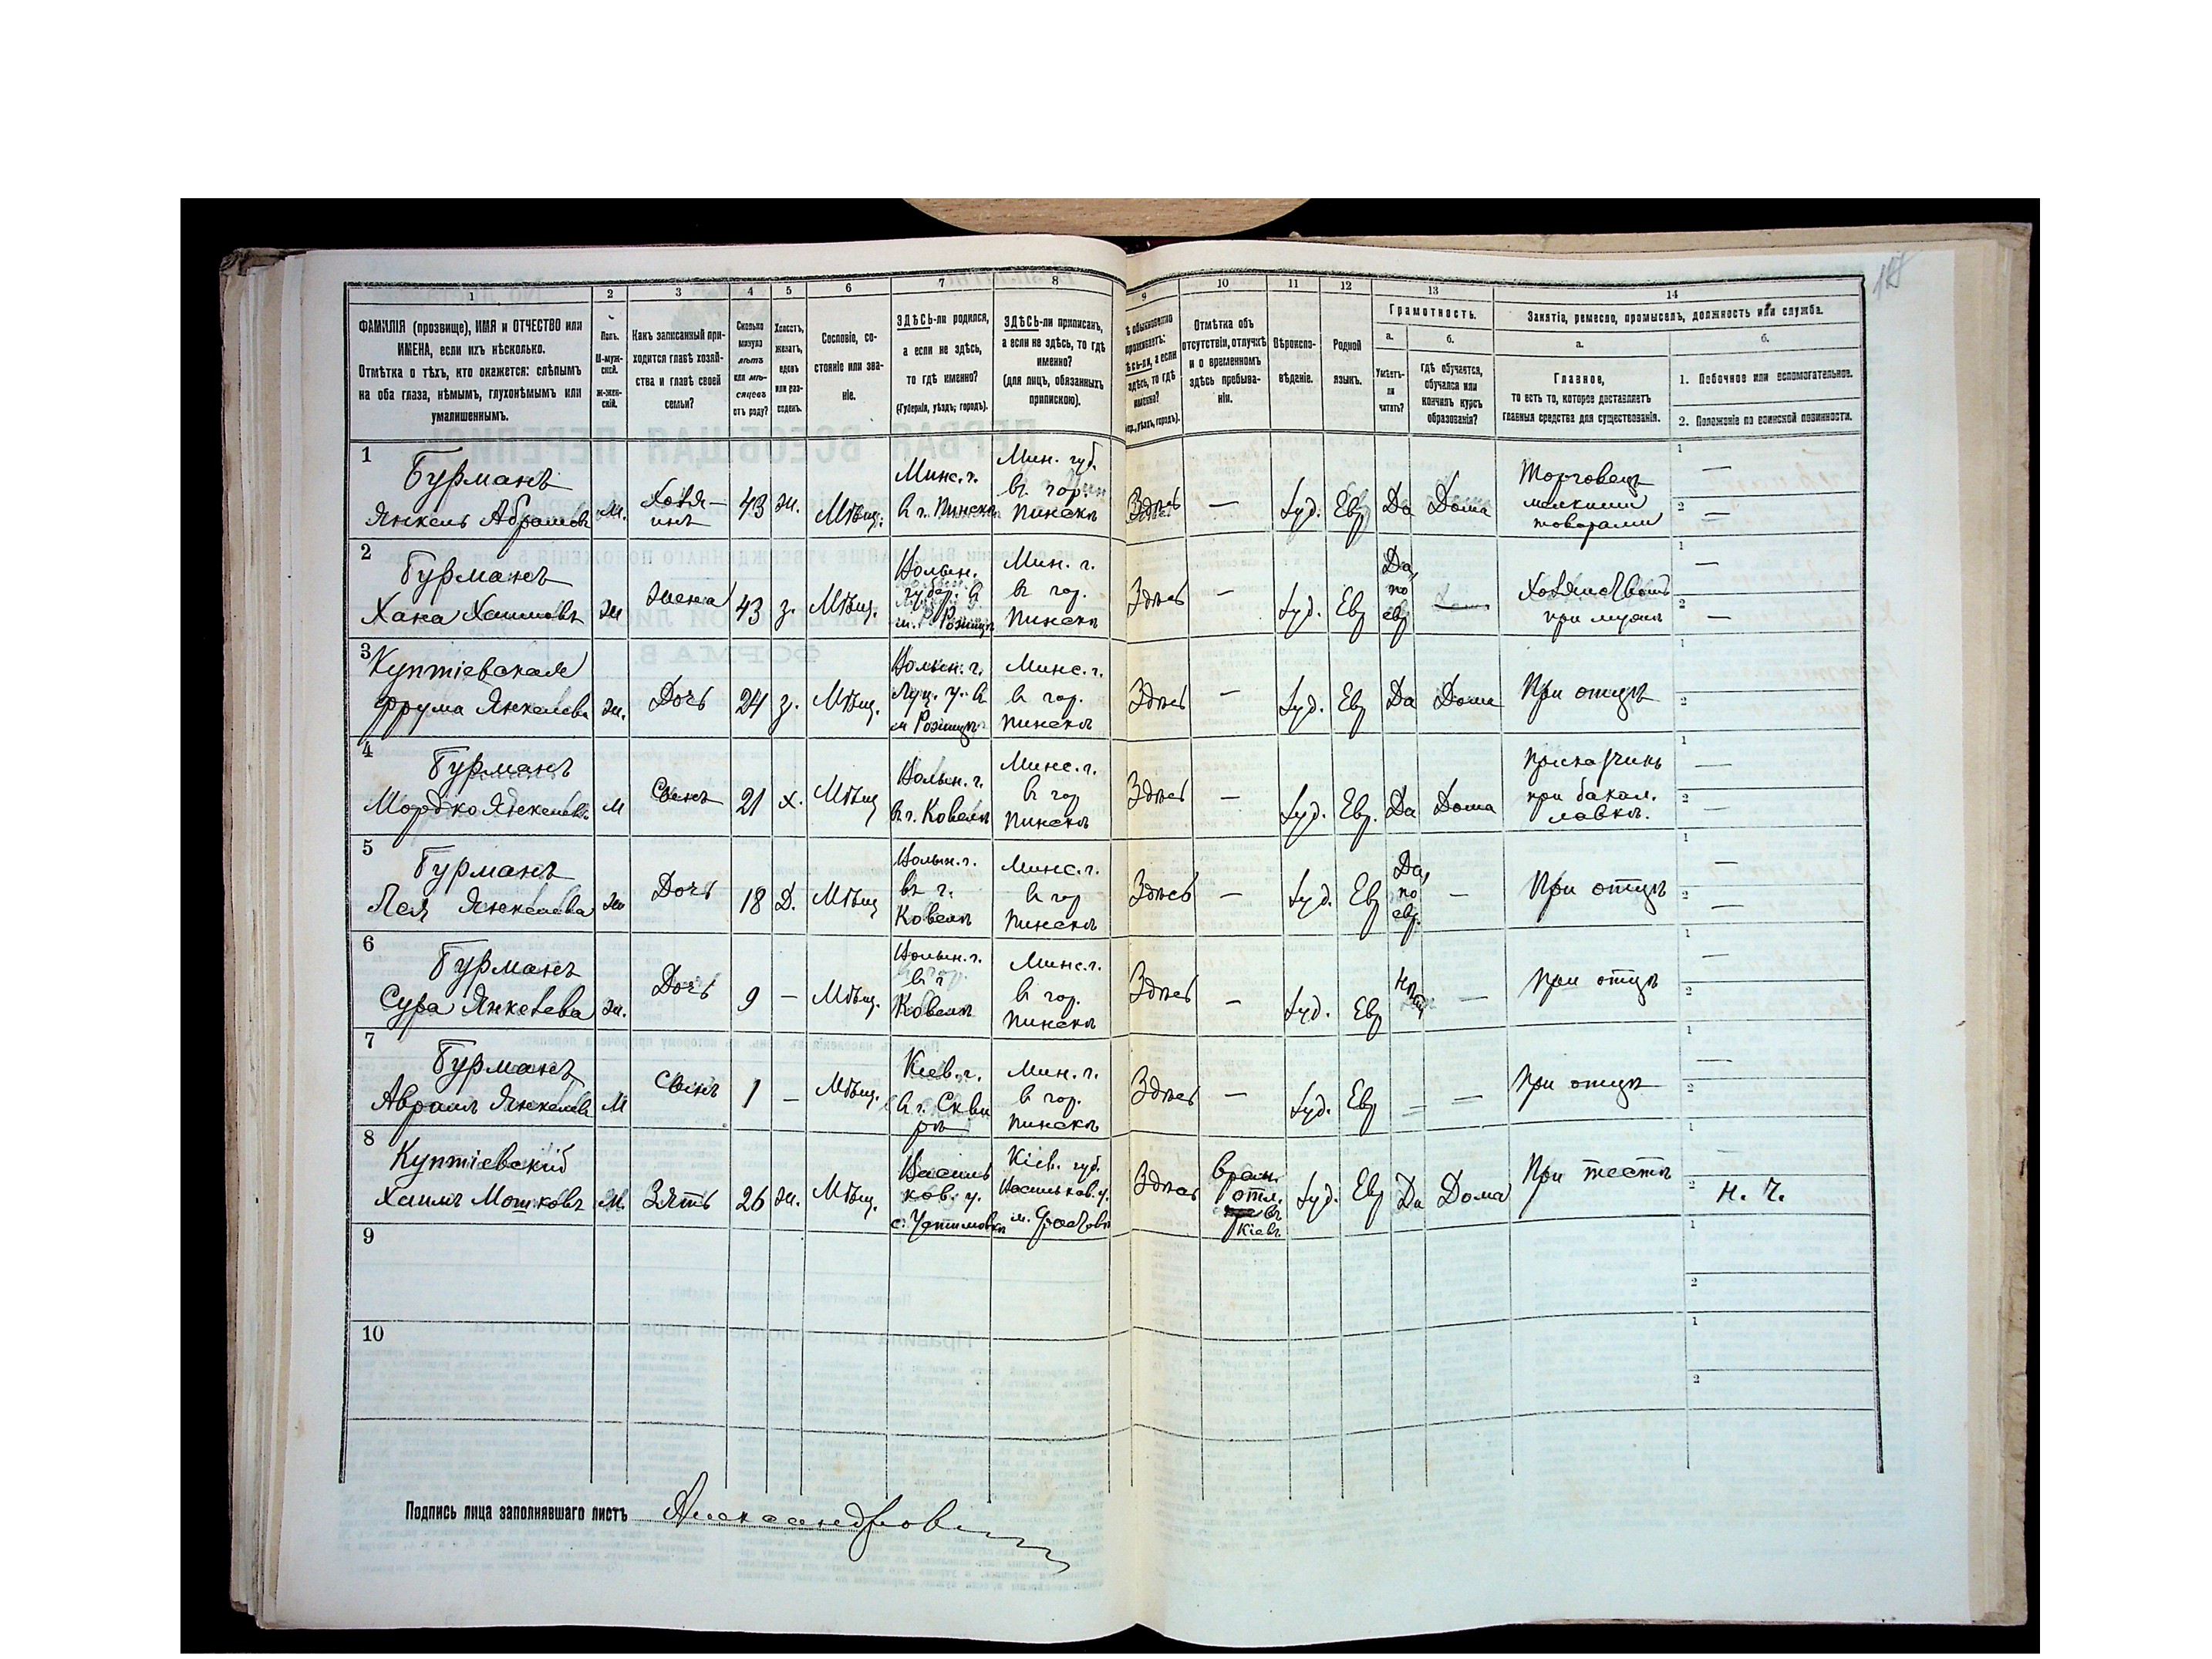 187
1 2 3 4 5 6 7 8 9 10 11 12 13 14
ФАМИЛІЯ (прозвище), ИМЯ и ОТЧЕСТВО или
ИМЕНА, если ихъ нѣсколько.
Отмѣтка о тѣхъ, кто окажется: слѣпымъ
на оба глаза, нѣмымъ, глухонѣмымъ или
умалишеннымъ.
Полъ.
М-муж-
ской.
ж-жен-
скій.
Какъ записанный при-
ходится главѣ хозяй-
ства и главѣ своей
семьи?
Сколько
минуло
лѣтъ
или мѣ-
сяцевъ
отъ роду?
Холостъ,
женатъ,
вдовъ
или раз-
веденъ.
Сословіе, со-
стояніе или зва-
ніе.
ЗДѢСЬ-ли родился,
а если не здѣсь,
то гдѣ именно?
(Губернія, уѣздъ, городъ).
ЗДѢСЬ-ли приписанъ,
а если не здѣсь, то гдѣ
именно?
(для лицъ, обязанныхъ
припискою).
обыкновенно
проживаетъ:
здѣсь-ли, а если
не здѣсь, то гдѣ
именно?
уѣздъ, городъ).
Отмѣтка объ
отсутствіи, отлучкѣ
и о временномъ
здѣсь пребыва-
ніи.
Вѣроиспо-
вѣданіе.
Родной
языкъ.
Грамотность.
а.
Умѣетъ-
ли
читать?
б.
гдѣ обучается,
обучался или
кончилъ курсъ
образованія?
Занятіе, ремесло, промыселъ, должность или служба.
а.
Главное,
то есть то, которое доставляетъ
главныя средства для существованія.
б.
1. Побочное или вспомогательное.
2. Положеніе по воинской повинности.
1
Бурманъ
Янкель Абрамовъ
М.
Хозя-
инъ
43
ж.
Мѣщ.
Минс. г.
в г. Пинскѣ
Мин. губ.
въ гор.
Пинскѣ
Здѣсь
—
Іуд.
Евр
Да
Дома
Торговецъ
мелкими
товарами
1 —
2 —
2
Бурманъ
Хана Хаимовъ
ж
жена
43
з.
Мѣщ.
Волын.
губер. в
м. Рожищѣ
Мин. г.
въ гор.
Пинскѣ
Здѣсь
—
Іуд.
Евр
Да,
по
евр
—
Хозяйство
при мужѣ
1 —
2 —
3
Куптіевская
Фрума Янкелева
ж.
Дочь
24
з.
Мѣщ.
Волын. г.
Луц. у. в
м Рожищѣ
Минс. г.
в гор.
Пинскѣ
Здѣсь
—
Іуд.
Евр
Да
Дома
При отцѣ
1
2
4
Бурманъ
Мордко Янкелевъ
М
Сынъ
21
х.
Мѣщ
Волын. г.
въ г. Ковелѣ
Минс. г.
в гор
Пинскѣ
Здѣсь
—
Іуд.
Евр.
Да
Дома
Прикащикъ
при бакал.
лавкѣ.
1 —
2 —
5
Бурманъ
Лея Янкелева
ж
Дочь
18
Д.
Мѣщ
Волын. г.
въ г.
Ковелѣ
Минс. г.
в гор
Пинскѣ
Здѣсь
—
Іуд.
Евр
Да,
по
евр.
—
При отцѣ
1 —
2 —
6
Бурманъ
Сура Янкелева
ж.
Дочь
9
—
Мѣщ.
Волын. г.
в г
Ковелѣ
Минс. г.
в гор.
Пинскѣ
Здѣсь
—
Іуд.
Евр
Нѣтъ
—
При отцѣ
1 —
2 —
7
Бурманъ
Авраам Янкелевъ
М
Сынъ
1
—
Мѣщ.
Кіев. г.
в г. Скви
рѣ
Мин. г.
в гор.
Пинскѣ
Здѣсь
—
Іуд.
Евр
—
—
При отцѣ
1 —
2
8
Куптіевскій
Хаимъ Мошковъ
М.
Зять
26
ж.
Мѣщ.
Василь
ков. у.
с. Устимовкѣ
Кіев. губ.
Васильков. у.
м. Фастовѣ
Здѣсь
Врем.
отл.
въ
Кіевъ
Іуд.
Евр
Да
Дома
При тестѣ
1 —
2 Н. Ч.
9
1
2
10
1
2
Подпись лица заполнявшаго листъ Александрович